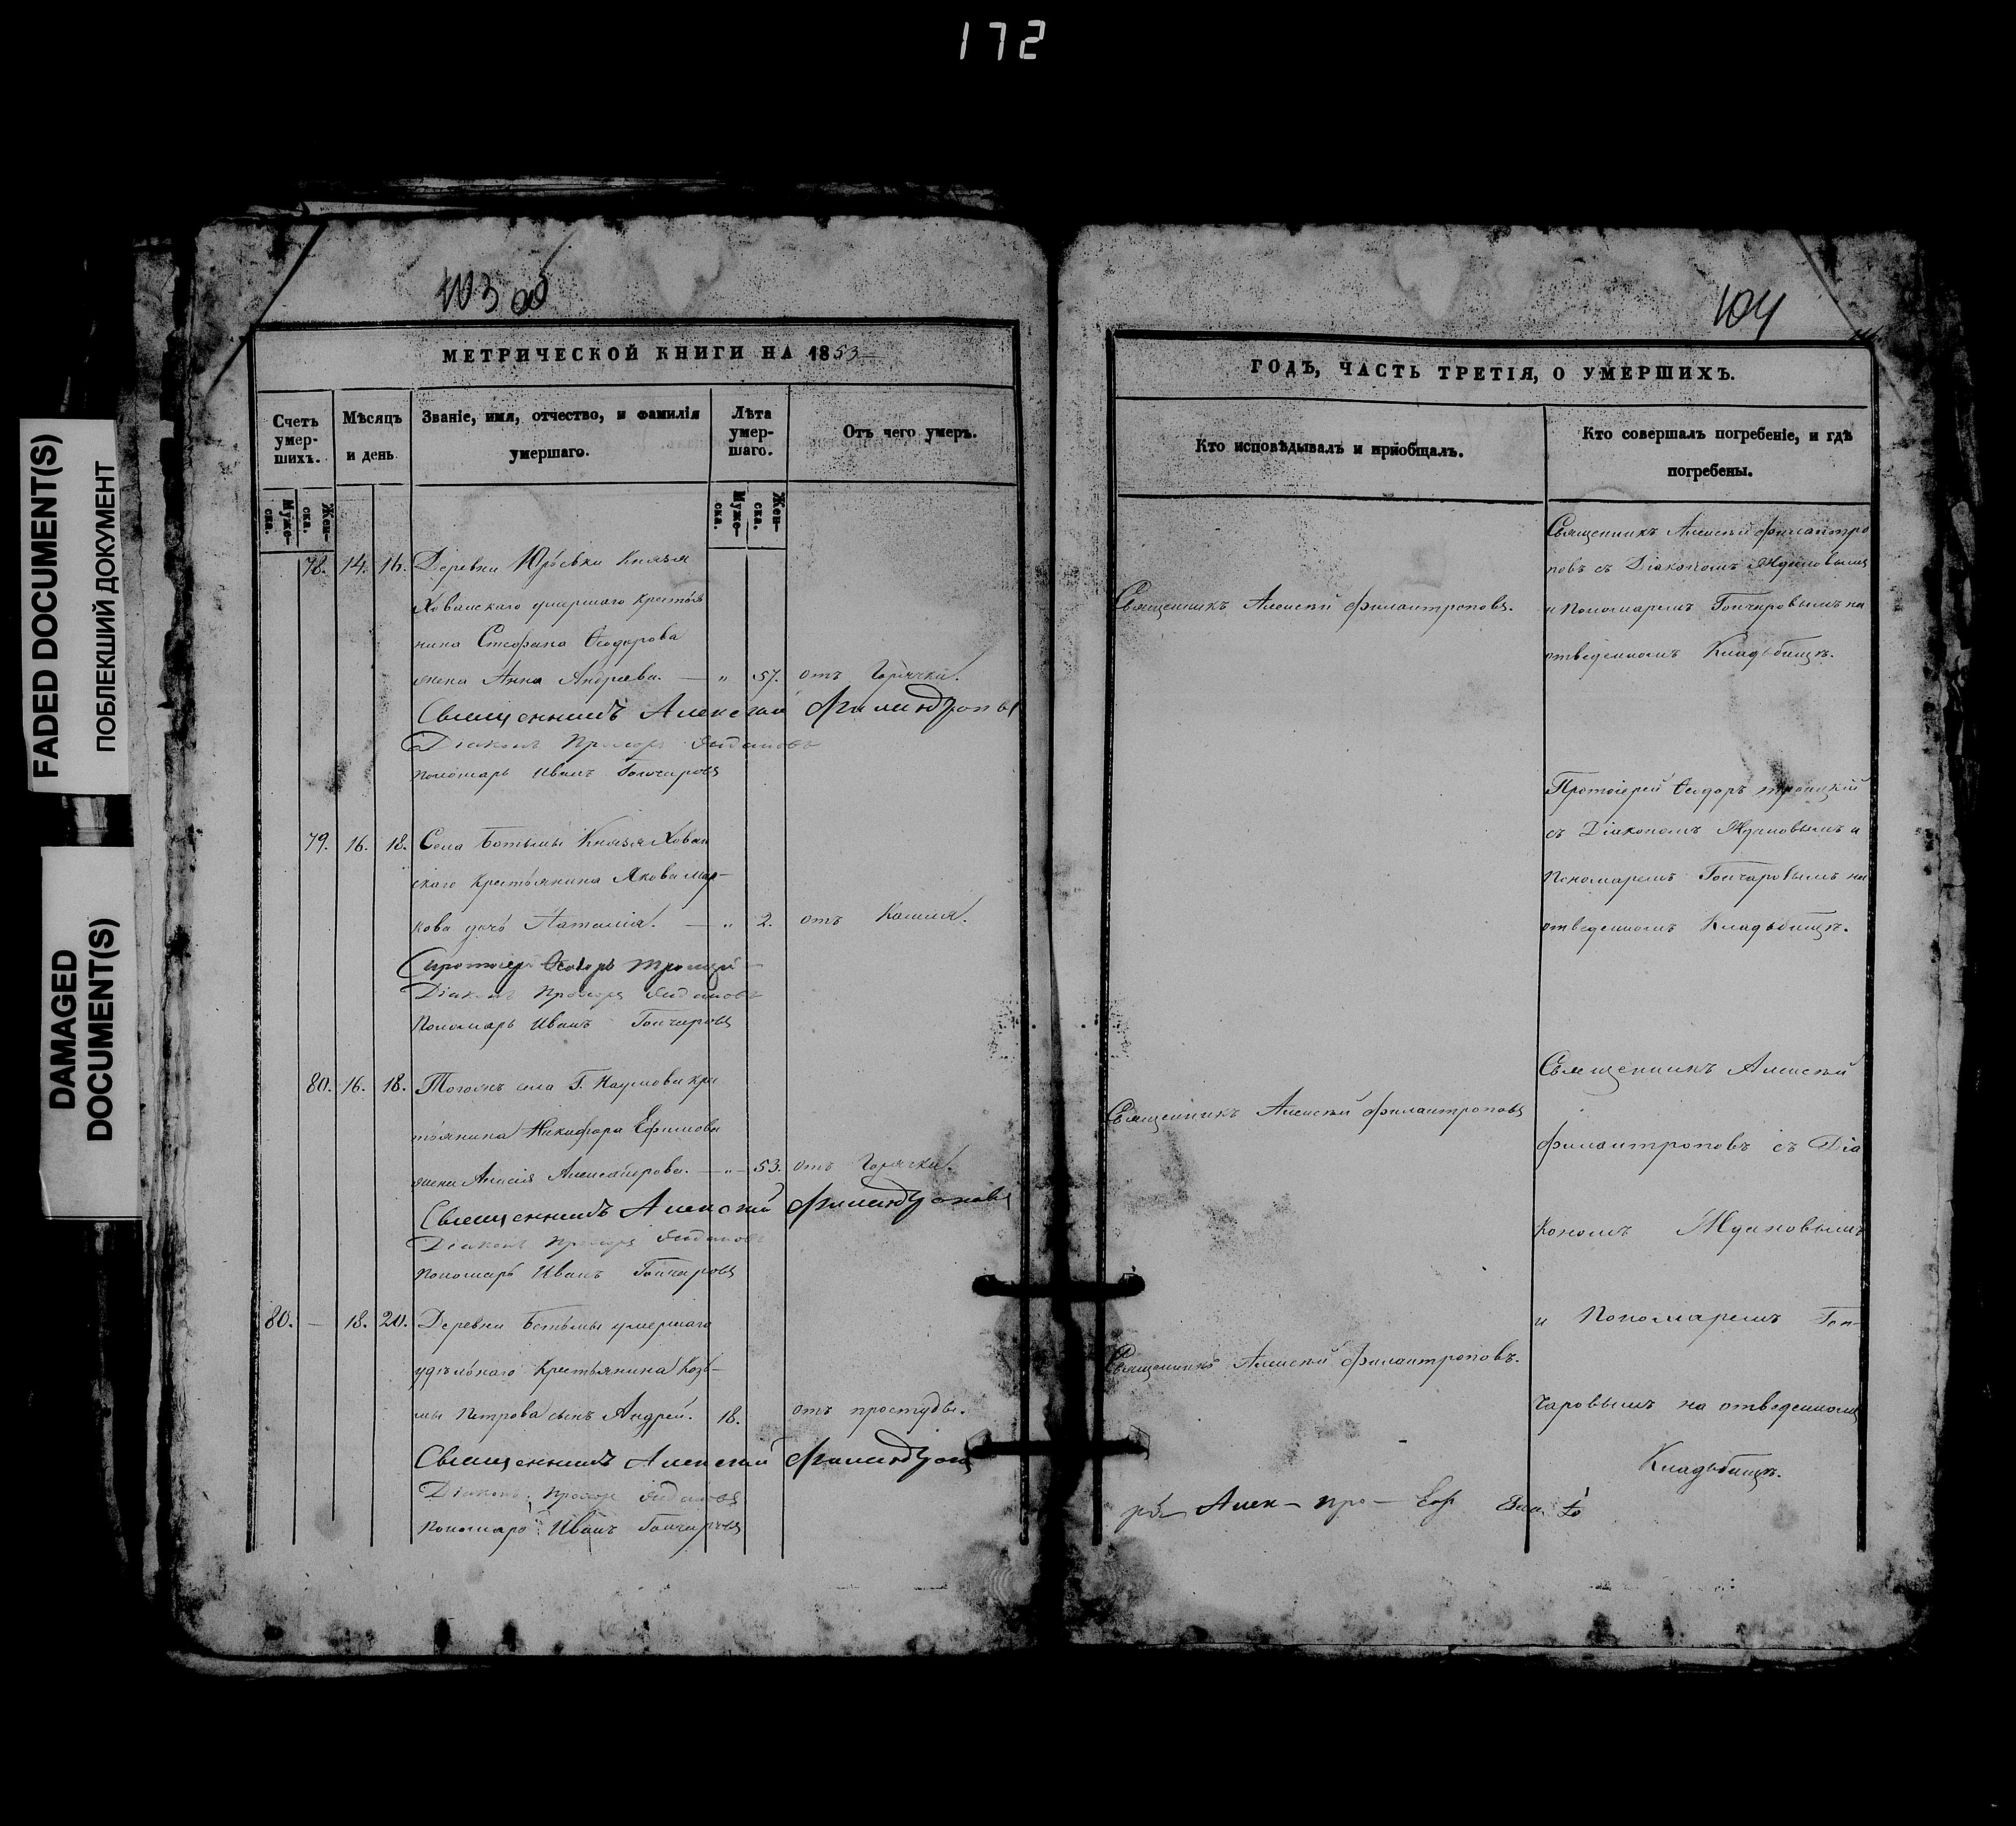 172
FADED DOCUMENT(S)
ПОБЛЕКШИЙ ДОКУМЕНТ
DAMAGED
DOCUMENT(S)
103 об
МЕТРИЧЕСКОЙ КНИГИ НА 1853
Счетъ умер-шихъ.
Муже-ска.
Жен-ска.
Мѣсяцъ и день
Званіе, имя, отчество, и фамилія
умершаго.
Лѣта умер-шаго.
Муже-ска.
Жен-ска.
Отъ чего умеръ.
78. 14. 16. Деревни Юрьевки Князя
Хованскаго умершаго крестья
нина Стефана Ѳеодорова
жена Анна Андреева. — „ 57. отъ горячки.
Священникъ Алексѣй Филантроповъ
Діаконъ Прохоръ Ждановъ
Пономарь Иванъ Гончаровъ
79. 16. 18. Села Ботьмы Князя Хован
скаго Крестьянина Якова Мар-
кова дочь Наталія. — „ 2. отъ Кашля.
Протоіерей Ѳеодоръ Троицкій
Діаконъ Прохоръ Ждановъ
Пономарь Иванъ Гончаровъ
80. 16. 18. Тогожъ села Г. Наумова кре
стьянина Никифора Ефимова
жена Анисія — „ — 53. отъ Горячки.
Священникъ Алексѣй Филантроповъ
Діаконъ Прохоръ Ждановъ
Пономарь Иванъ Гончаровъ
80. — 18. 20. Деревни Ботьмы умершаго
удѣльнаго Крестьянина Козь-
мы Петрова сынъ Андрей. 18. отъ простуды.
Священникъ Алексѣй Филантроповъ
Діаконъ Прохоръ Ждановъ
Пономарь Иванъ Гончаровъ
104
ГОДЪ, ЧАСТЬ ТРЕТІЯ, О УМЕРШИХЪ.
Кто исповѣдывалъ и пріобщалъ.
Кто совершалъ погребеніе, и гдѣ
погребены.
Священникъ Алексѣй Филантроповъ.
Священникъ Алексѣй Филантро
повъ съ Діакономъ Ждановымъ
и Пономаремъ Гончаровымъ на
отведенномъ Кладьбищѣ.
Протоіерей Ѳеодоръ Троицкій
съ Діакономъ Ждановымъ и
Пономаремъ Гончаровымъ на
отведенномъ Кладьбищѣ.
Священникъ Алексѣй Филантроповъ
Священникъ Алексѣй
Филантроповъ съ Діа
кономъ Ждановымъ
и Пономаремъ Гон-
чаровымъ на отведенномъ
Кладьбищѣ.
Священникъ Алексѣй Филантроповъ.
Алек — про —